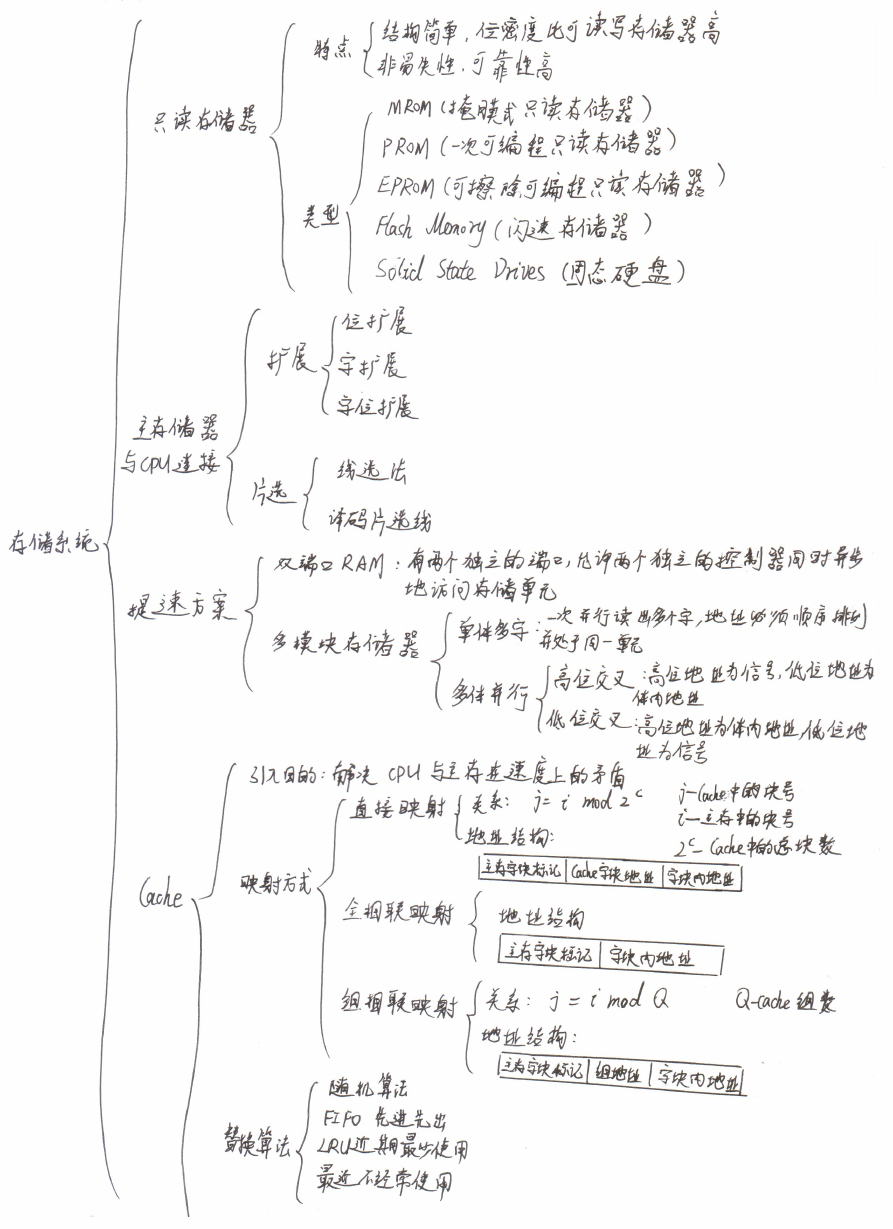 存储系统
只读存储器
特点
结构简单，位密度比可读写存储器高
非易失性，可靠性高
类型
MROM（掩膜式只读存储器）
PROM（一次可编程只读存储器）
EPROM（可擦除可编程只读存储器）
Flash Memory（闪速存储器）
Solid State Drives（固态硬盘）
主存储器
与CPU连接
扩展
位扩展
字扩展
字位扩展
片选
线选法
译码片选线
提速方案
双端口RAM：有两个独立的端口，允许两个独立的控制器同时异步
地访问存储单元
多模块存储器
单体多字：一次并行读出多个字，地址必须顺序排列
并处于同一单元
多体并行
高位交叉：高位地址为信号，低位地址为
体内地址
低位交叉：高位地址为体内地址，低位地
址为信号
Cache
引入目的：解决CPU与主存在速度上的矛盾
映射方式
直接映射
关系：j = i mod 2^c
j-Cache中的块号
i-主存中的块号
2^c-Cache中的总块数
地址结构：
主存字块标记 Cache字块地址 字块内地址
全相联映射
地址结构
主存字块标记 字块内地址
组相联映射
关系：j = i mod Q Q-cache组数
地址结构：
主存字块标记 组地址 字块内地址
替换算法
随机算法
FIFO 先进先出
LRU近期最少使用
最近不经常使用